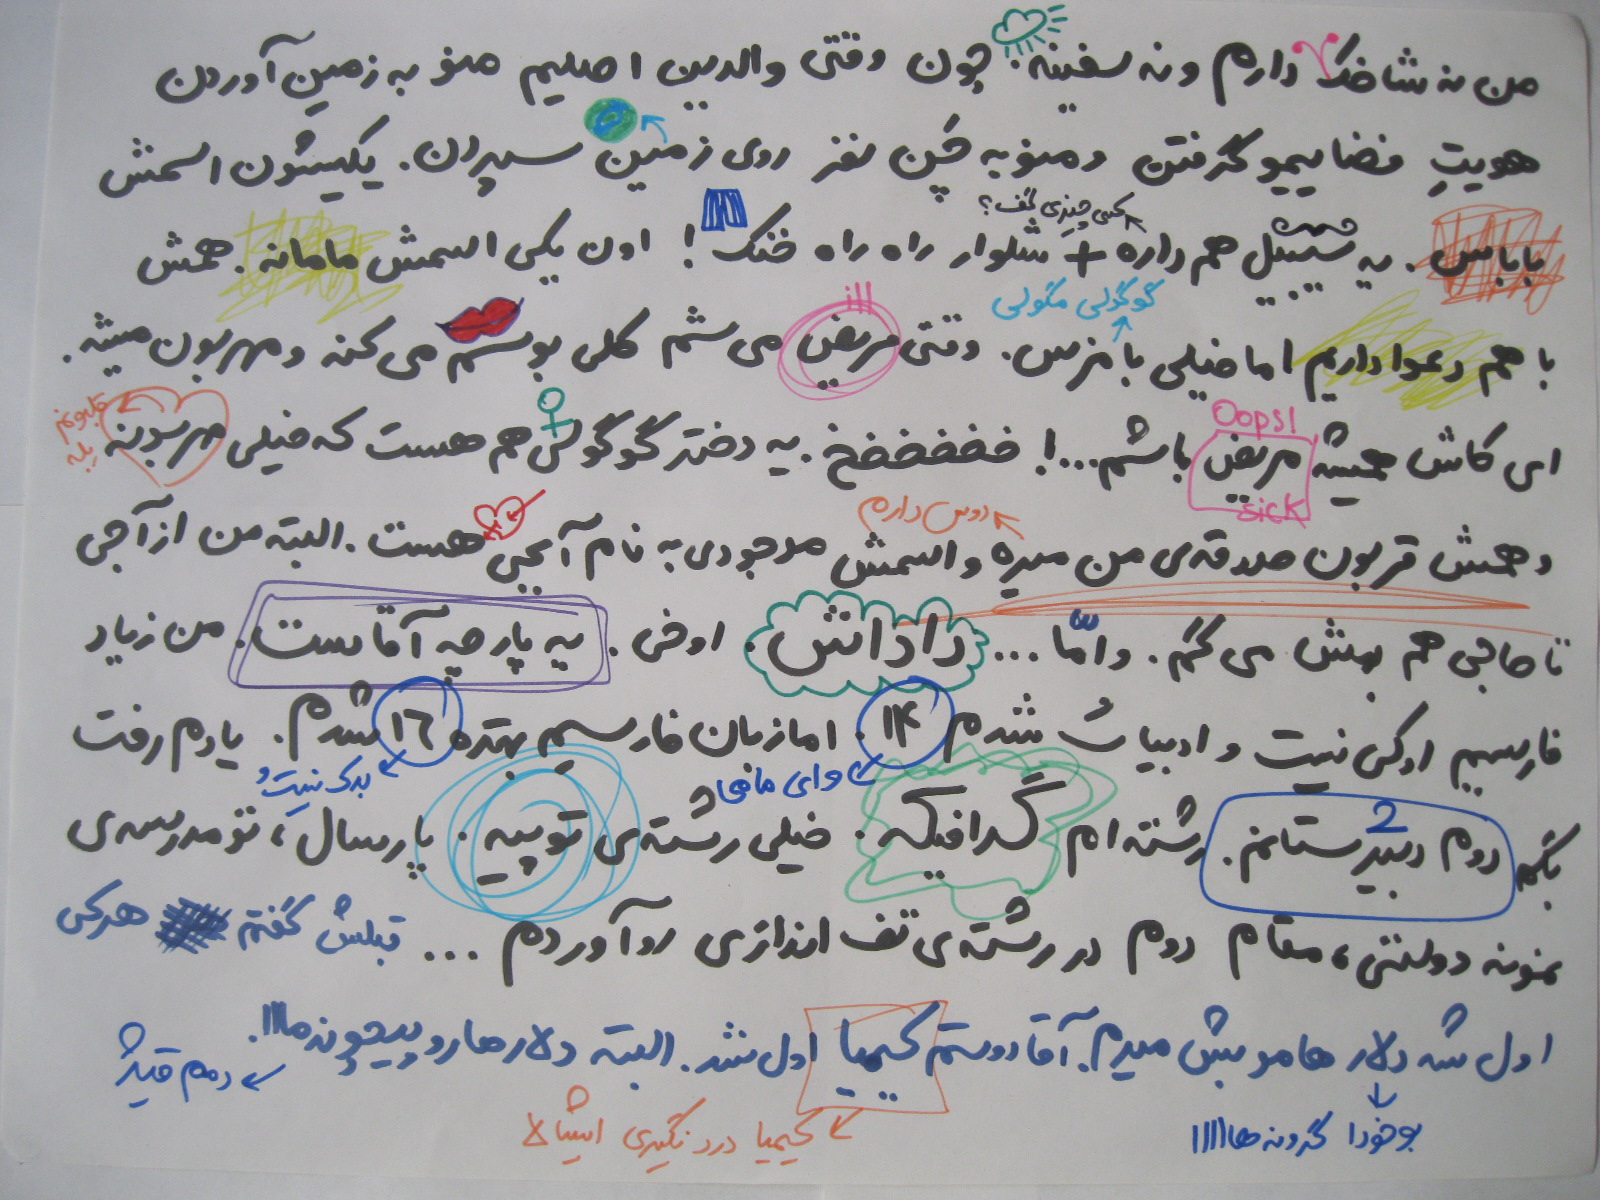 من نه شاخک دارم و نه سفینه. چون وقتی والدین اصلیم منو به زمین آوردن
هویتِ فضاییمو گرفتن و منو به چن نفر روی زمین سپردن. یکیشون اسمش
کسی چیزی گف؟
باباس. یه سیبیل هم داره + شلوار راه راه خنک! اون یکی اسمش مامانه. همش
گوگولی مگولی
ill
با هم دعوا داریم اما خیلی بامزس. وقتی مریض می شم کلی بوسم می کنه و مهربون میشه.
Oops!
ای کاش همیشه مریض باشم...! خخخخخخ. یه دختر گوگولی هم هست که خیلی مهربونه
قلبونم بله
sick
دوس دارم
و همش قربون صدقه ی من میره و اسمش موجودی به نام آبجی هست. البته من از آجی
تا حاجی هم بهش می گم. و امّا... داداش. اوخی. یه پارچه آقاست. من زیاد
فارسیم اوکی نیست و ادبیات شدم ۱۴. اما زبان فارسیم بهتره ۱۶ شدم. یادم رفت
وای مامی
بدک نیست
بگم دوم دبیرستانم. رشته ام گرافیکه. خیلی رشته ی توپیه. پارسال، تو مدرسه ی
2
نمونه دولتی، مقام دوم در رشته ی تف اندازی رو آوردم ... قبلش گفتم هرکی
اول شه دلار هامو بش میدم. آقا دوستم کیمیا اول شد. البته دلارها رو پیچوندمااا.
دمم قیژ
بوخودا گرونه هااااا
کیمیا درد نگیری ایشالا